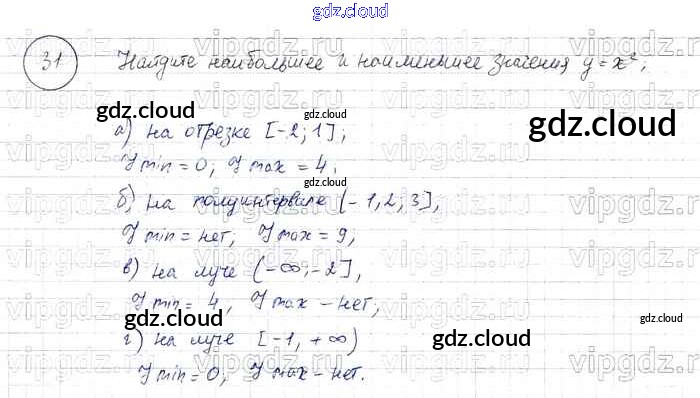 gdz.cloud
31 Найдите наибольшее и наименьшее значения y = x²;
gdz.cloud
gdz.cloud
gdz.cloud
а) на отрезке [-2; 1];
У min = 0; У max = 4.
gdz.cloud
б) на полуинтервале (-1,2; 3],
У min = нет; У max = 9,
gdz.cloud
в) на луче (-∞; -2],
У min = 4, У max - нет;
gdz.cloud
gdz.cloud
г) на луче [-1, +∞)
gdz.cloud
У min = 0, У max - нет.
gdz.cloud
vipgdz.ru